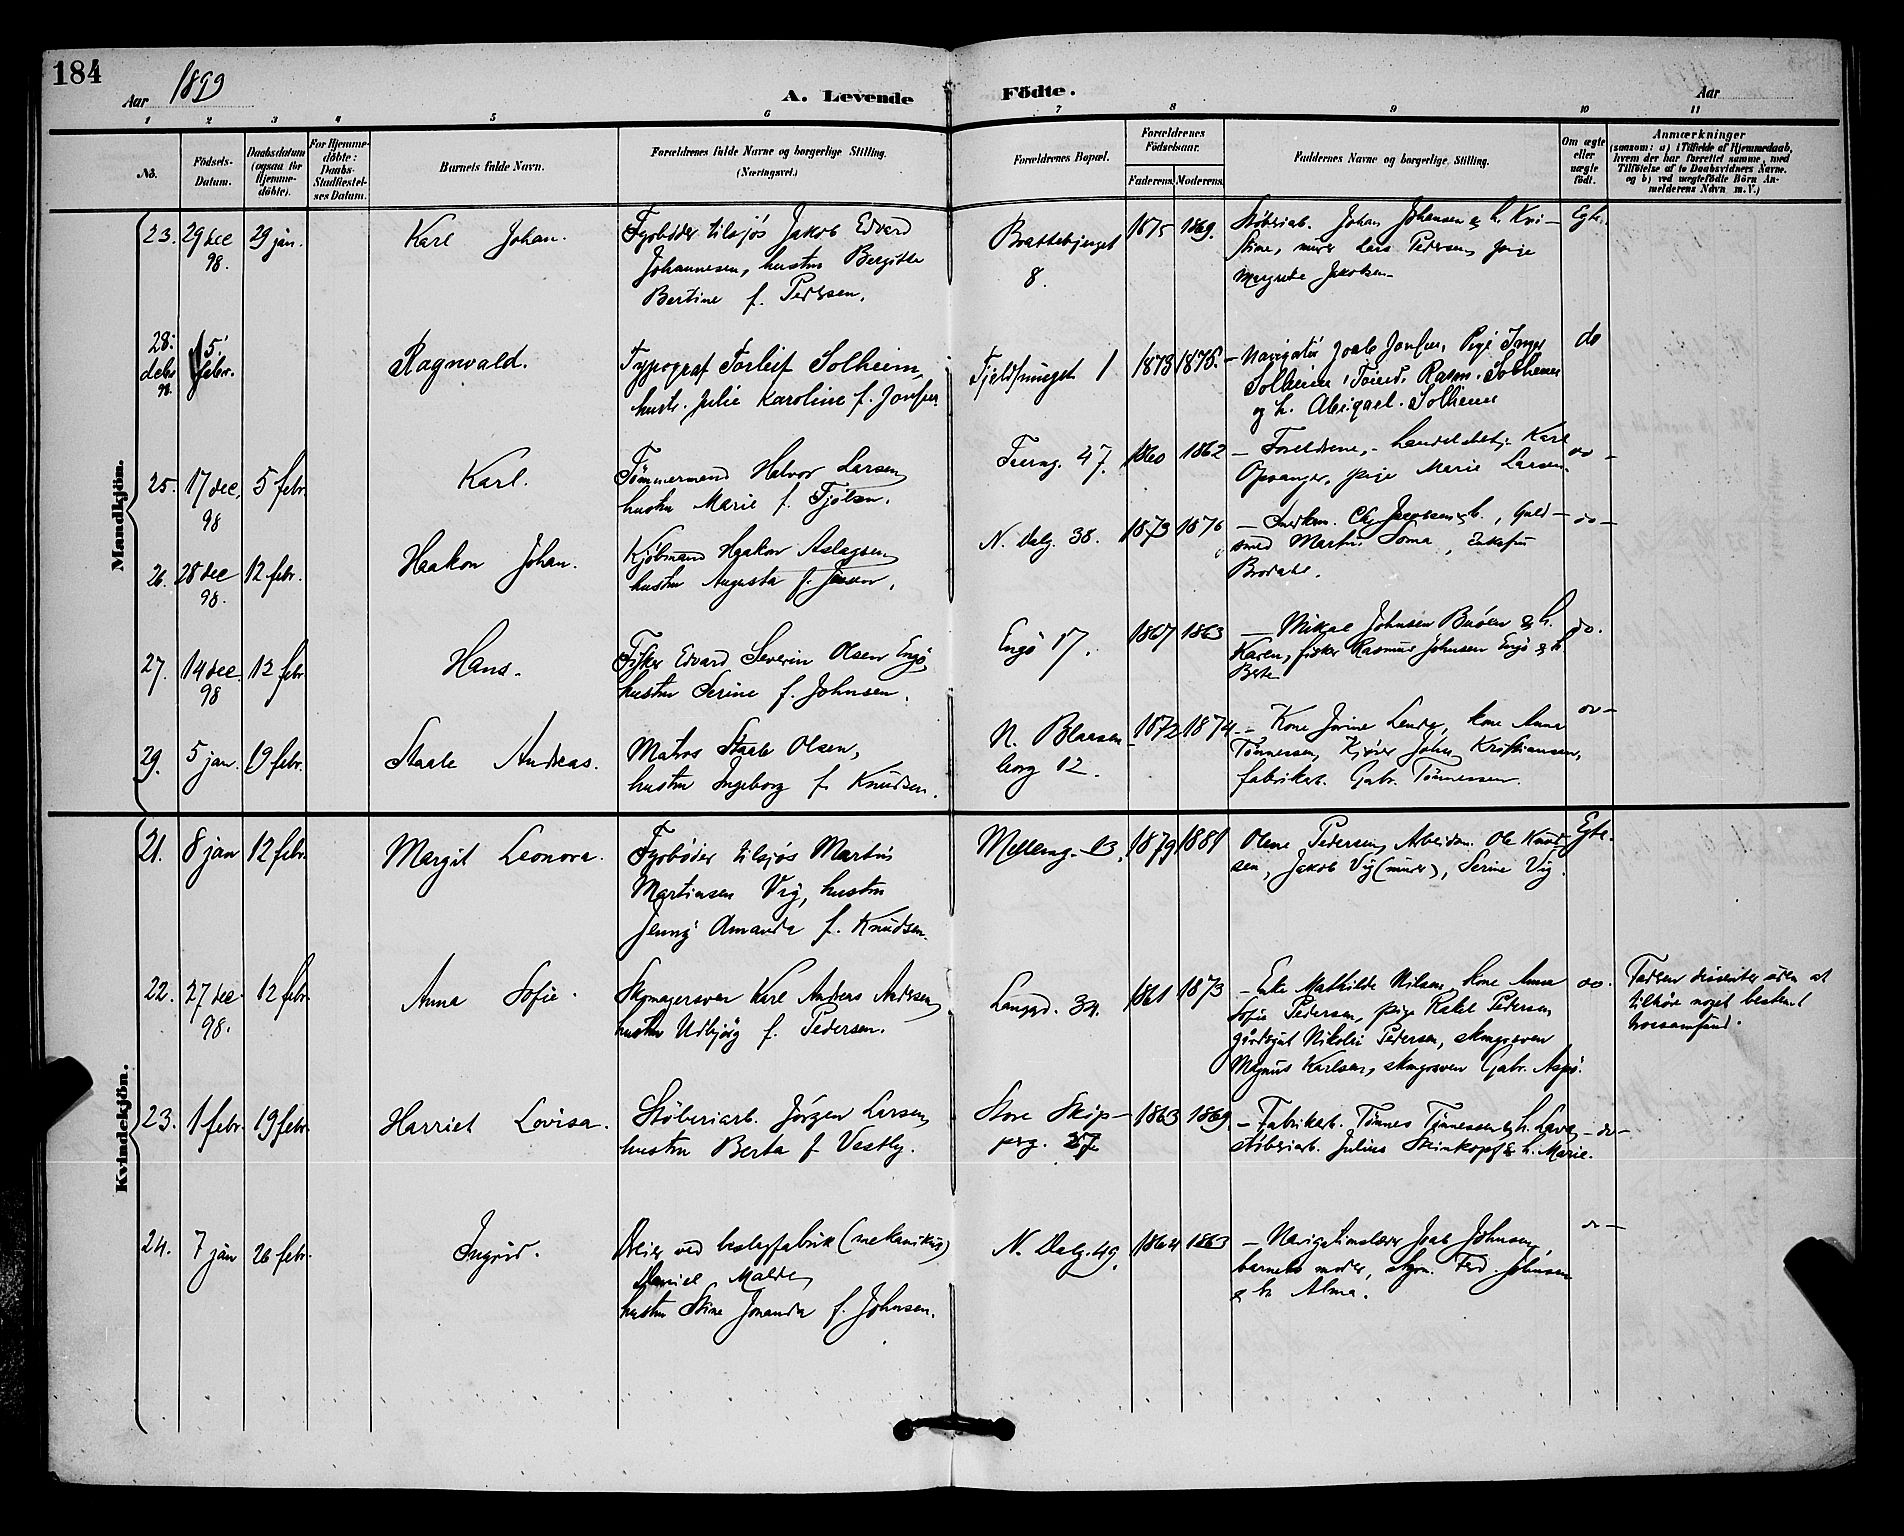 184
Aar 1899
A. Levende Födte.
Aar
1 2 3 4 5 6 7 8 9 10 11
No.
Födsels-
Datum.
Daabsdatum
(ogsaa for
Hjemme-
döbte).
For Hjemme-
döbte:
Daabs-
Stadfæstel-
ses Datum.
Barnets fulde Navn.
Forældrenes fulde Navne og borgerlige Stilling.
(Næringsvei.)
Forældrenes Bopæl.
Forældrenes
Födselsaar.
Faderens. Moderens.
Faddernes Navne og borgerlige Stilling.
Om ægte
eller
uægte
födt.
Anmærkninger
(saasom: a) i Tilfælde af Hjemmedaab,
hvem der har forrettet samme, med
Tilföielse af to Daabsvidners Navne,
og b) ved uægtefödte Börn An-
melderens Navn m. V.)
Mandkjön.
23. 29 dec
98.
29 jan.
Karl Johan.
Fyrbøder tilsjøs Jakob Edvard
Johannesen, hustru Bergitte
Bertine f. Pedersen.
Brattebjerget
8.
1875 1869.
Støberiarb. Johan Johansen & h. Kri-
stine, murer Lars Pedersen, pige
Margrete Jakobsen
Egte.
28.
decbr
98.
5.
febr.
Ragnvald.
Typograf Torleif Solheim,
hustr. Julie Karoline f. Jonsen
1
1873 1875.
Navigatør Joab Jonsen, Pige Inger
Solheim, Rasm. Solheim
og h. Abigael Solheim
do
25. 17 dec,
98
5 febr.
Karl.
Tømmermand Halvor Larsen
hustru Marie f. Fjølsen.
47.
1860 1862
— Forældrene, Karl
Opsanger, pige Marie Larsen.
do —
26. 28 dec
98.
12 febr.
Haakon Johan.
Kjøbmand Haakon Aslagsen
hustru Augusta f.
N. Dalg. 38.
1873 1876
— Jacobsen & h., Guld-
smed Martin Soma, Enkefru
Brodahl.
— do —
27. 14 dec.
98
12 febr
Hans.
Fisker Edvard Severin Olsen Engø
hustru Serine f. Johnsen.
Engø 17.
1867 1863
— Mikal Johnsen Buøen & h.
Karen, fisker Rasmus Johnsen Engø & h
Berte
do.
29. 5 jan. 19 febr.
Staale Andreas.
Matros Staale Olsen,
hustru Ingeborg f. Knudsen.
N. Blaasen
borg 12.
1872 1874
— Kone Jorine Lende, kone Anna
Tønnessen, Kjører John Kristiansen,
fabrikarb. Gabr. Tønnessen.
do —
Kvindekjön.
21. 8 jan 12 febr.
Margit Leonora.
Fyrbøder tilsjøs Martin
Martinsen Vig, hustru
Jenny Amanda f. Knudsen.
Mellemg. 13.
1879 1881
Olene Pedersen, Arbeidsm. Ole Knud-
sen, Jakob Vig (murer), Serine Vig.
Egte.
22. 27 dec
98.
12 febr.
Anna Sofie.
Skomagersven Karl Andreas Andersen
hustru Udbjørg f. Pedersen.
Langgd. 34.
1861 1873
— Enke Mathilde Nilsen, kone Anna
Sofie Pedersen, pige Rakel Pedersen
gårdsgut Nikolai Pedersen, skomgrsven
Magnus Karlsen, skomgrsven Gabr. Aspø.
do.
Faderen dissenter uden at
tilhøre noget bestemt
trossamfund.
23. 1 febr. 19 febr.
Harriet Lovisa.
Støberiarb. Jørgen Larsen,
hustru Berta f Vestby.
Store Skip-
perg. 27
1863 1869
— Fabrikarb. Tønnes Tønnessen & h. Lava,
støberiarb. Julius Steinkopf & h. Marie.
— do —
24. 7 jan 26 febr.
Ingrid.
Dreier ved beslagfabrik (mekanikus)
Daniel Malde,
hustru Stine Jonanda f. Johnsen.
N. Dalg. 49.
1864 1863
— Navigationslærer Joab Johnsen,
barnets moder, skom. Ferd. Johnsen
& h Alma.
do —